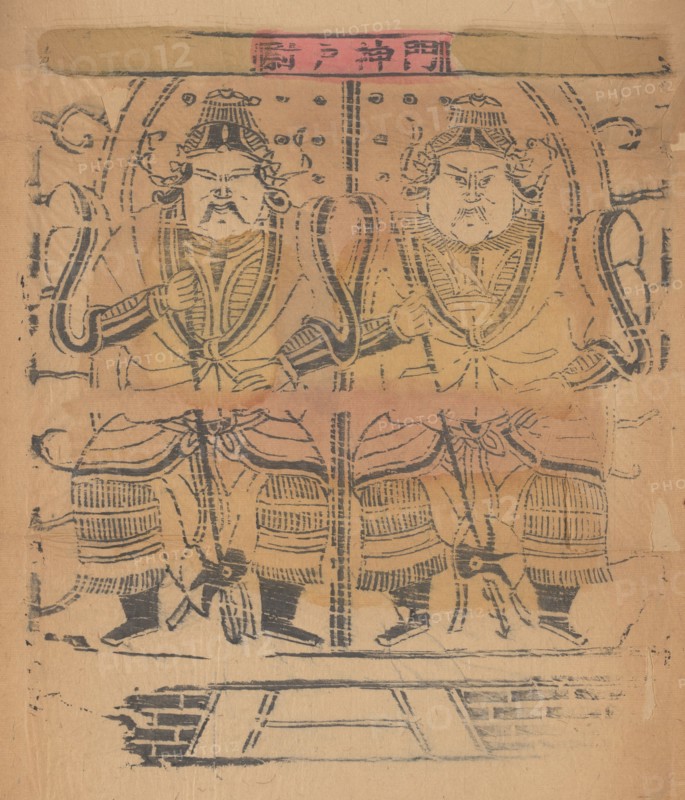 門神戶尉
PHOTO12